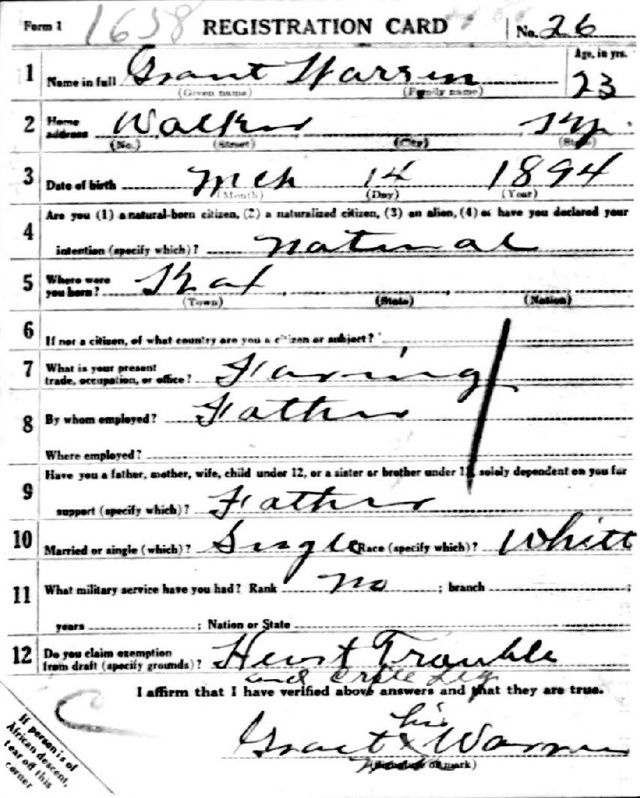 Form 1 1638 REGISTRATION CARD No. 26
1 Name in full Grant Warren Age, in yrs. 23
(Given name) (Family name)
2 Home address Walker Ky
(No.) (Street) (City) (State)
3 Date of birth Mch 14 1894
(Month) (Day) (Year)
4 Are you (1) a natural-born citizen, (2) a naturalized citizen, (3) an alien, (4) or have you declared your
intention (specify which)? natural
5 Where were you born?
(Town) (State) (Nation)
6 If not a citizen, of what country are you a citizen or subject?
7 What is your present trade, occupation, or office? Farming
8 By whom employed? Father
Where employed?
9 Have you a father, mother, wife, child under 12, or a sister or brother under 12, solely dependent on you for
support (specify which)? Father
10 Married or single (which)? Single Race (specify which)? White
11 What military service have you had? Rank no ; branch
years ; Nation or State
12 Do you claim exemption from draft (specify grounds)? Trouble
and Leg
I affirm that I have verified above answers and that they are true.
his
Grant X Warren
(Signature or mark)
If person is of
African descent,
tear off this
corner